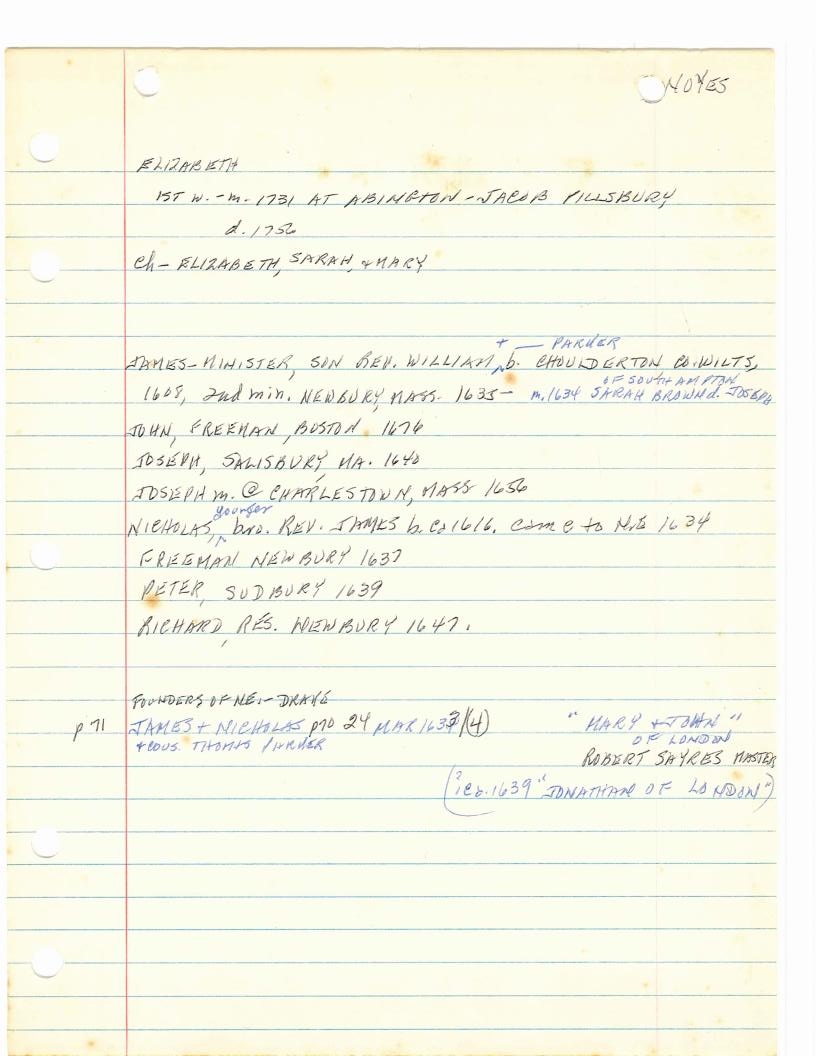 NOYES
ELIZABETH
1ST W. - m. 1731 AT ABINGTON - JACOB PILLSBURY
d. 1756
Ch - ELIZABETH, SARAH, + MARY
+ — PARKER
JAMES - MINISTER, SON REV. WILLIAM, b. CHOULDERTON CO. WILTS,
OF SOUTHAMPTON
1608, 2nd min. NEWBURY, MASS. 1635 - m. 1634 SARAH BROWN d. JOSEPH
JOHN, FREEMAN, BOSTON 1676
JOSEPH, SALISBURY, MA. 1640
JOSEPH m. @ CHARLESTOWN, MASS 1656
younger
NICHOLAS, bro. REV. JAMES b. ca 1616. came to N.E 1634
FREEMAN NEWBURY 1637
PETER, SUDBURY 1639
RICHARD, RES. NEWBURY 1647.
FOUNDERS OF NE. - DRAKE
p 71 JAMES + NICHOLAS p70 24 MAR 1633/(4) "MARY + JOHN"
+ COUS. THOMAS PARKER OF LONDON
ROBERT SAYRES MASTER
(? 1639 "JONATHAN OF LONDON")